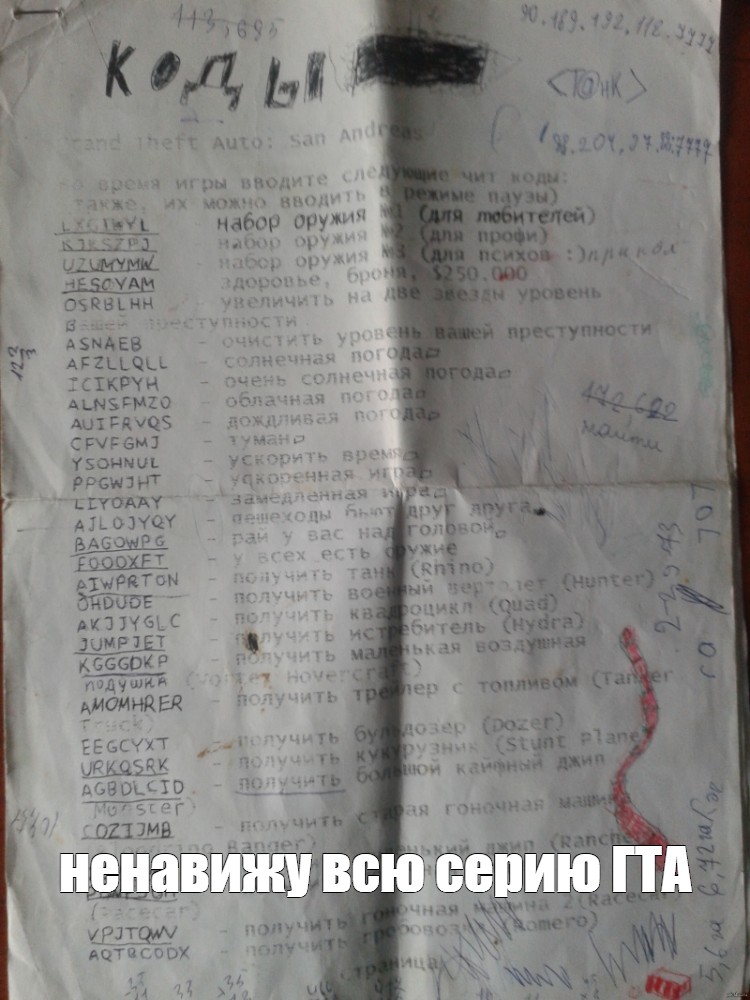 113,685
90.189.192.112.7777
КОДЫ
<Т@нк>
Grand Theft Auto: San Andreas
во время игры вводите следующие чит коды:
также, их можно вводить в режиме паузы)
LXGIWYL набор оружия №1 (для любителей)
KJKSZPJ набор оружия №2 (для профи)
UZUMYMW набор оружия №3 (для психов :)прикол
HESOYAM здоровье, броня, $250.000
OSRBLHH - увеличить на две звезды уровень
вашей преступности
ASNAEB - очистить уровень вашей преступности
AFZLLQLL - солнечная погода
ICIKPYH - очень солнечная погода
ALNSFMZO - облачная погода
AUIFRVQS - дождливая погода
CFVFGMJ - туман
YSOHNUL - ускорить время
найти
PPGWJHT - ускоренная игра
LIYOAAY - замедленная игра
AJLOJYQY - пешеходы бьют друг друга
BAGOWPG - рай у вас над головой
FOOOXFT - у всех есть оружие
AIWPRTON - получить танк (Rhino)
OHDUDE - получить военный вертолет (Hunter)
AKJJYGLC - получить квадроцикл (Quad)
JUMPJET - получить истребитель (Hydra)
KGGGDKP - получить маленькая воздушная
подушка (Vortex Hovercraft)
AMOMHRER - получить трейлер с топливом (Tanker
Truck)
EEGCYXT - получить бульдозер (Dozer)
URKQSRK - получить кукурузник (Stunt plane)
AGBDLCID - получить большой каифный джип
(Monster)
CQZIJMB - получить старая гоночная машина
ненавижу всю серию ГТА
(Racecar)
VPJTQWV - получить гоночная машина 2(Racecar)
AQTBCODX - получить гробовозку (Romero)
страница